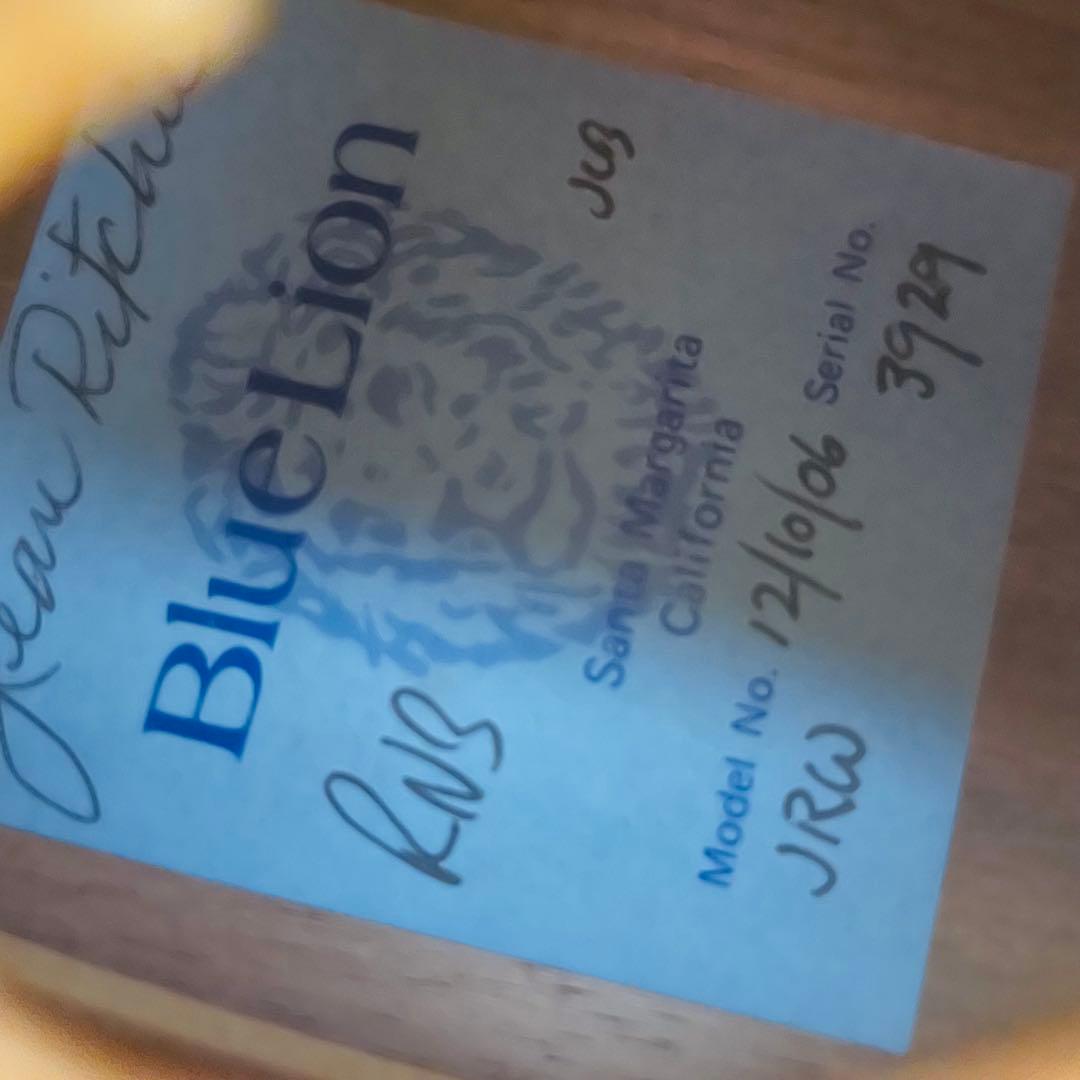 Jean Ritchie
Blue Lion
RNB
JCB
Santa Margarita
California
Model No. 12/10/06 Serial No.
JRW 3929